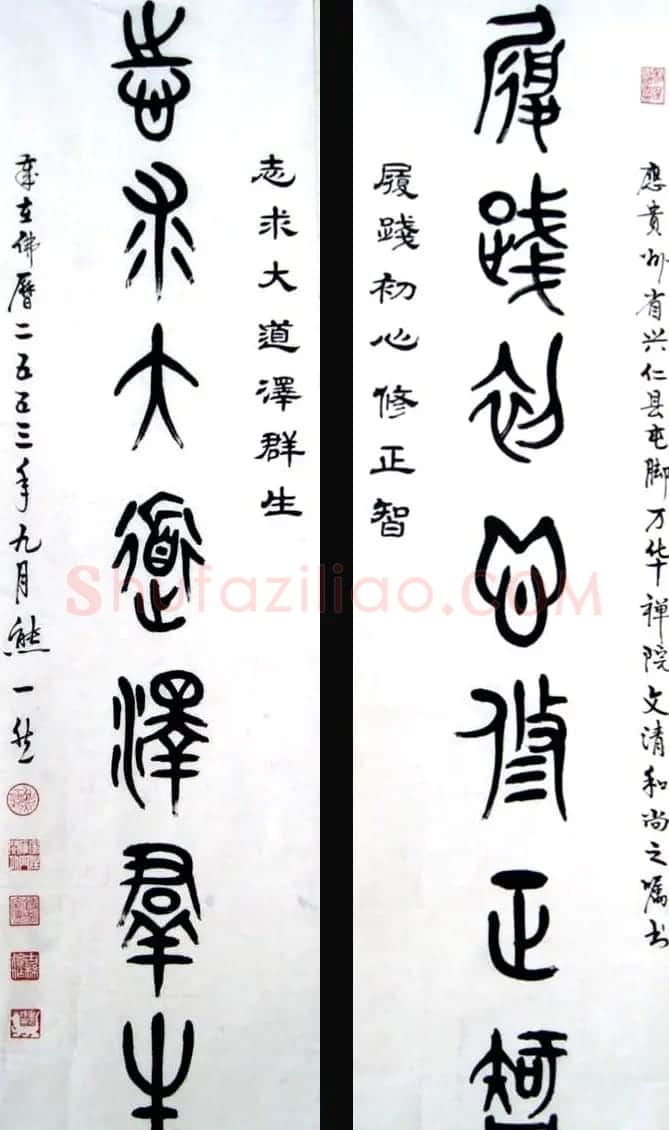 應贵州省兴仁县屯脚万华禅院文清和尚之嘱书
履踐初心修正智
履踐初心修正智
志求大道澤群生
志求大道澤羣生
歲在佛曆二五五三年九月熊一然
Shufaziliao.COM